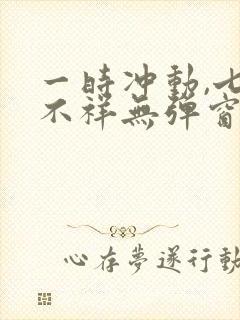 一時冲動,七
不祥無彈窗
心存夢遂行動